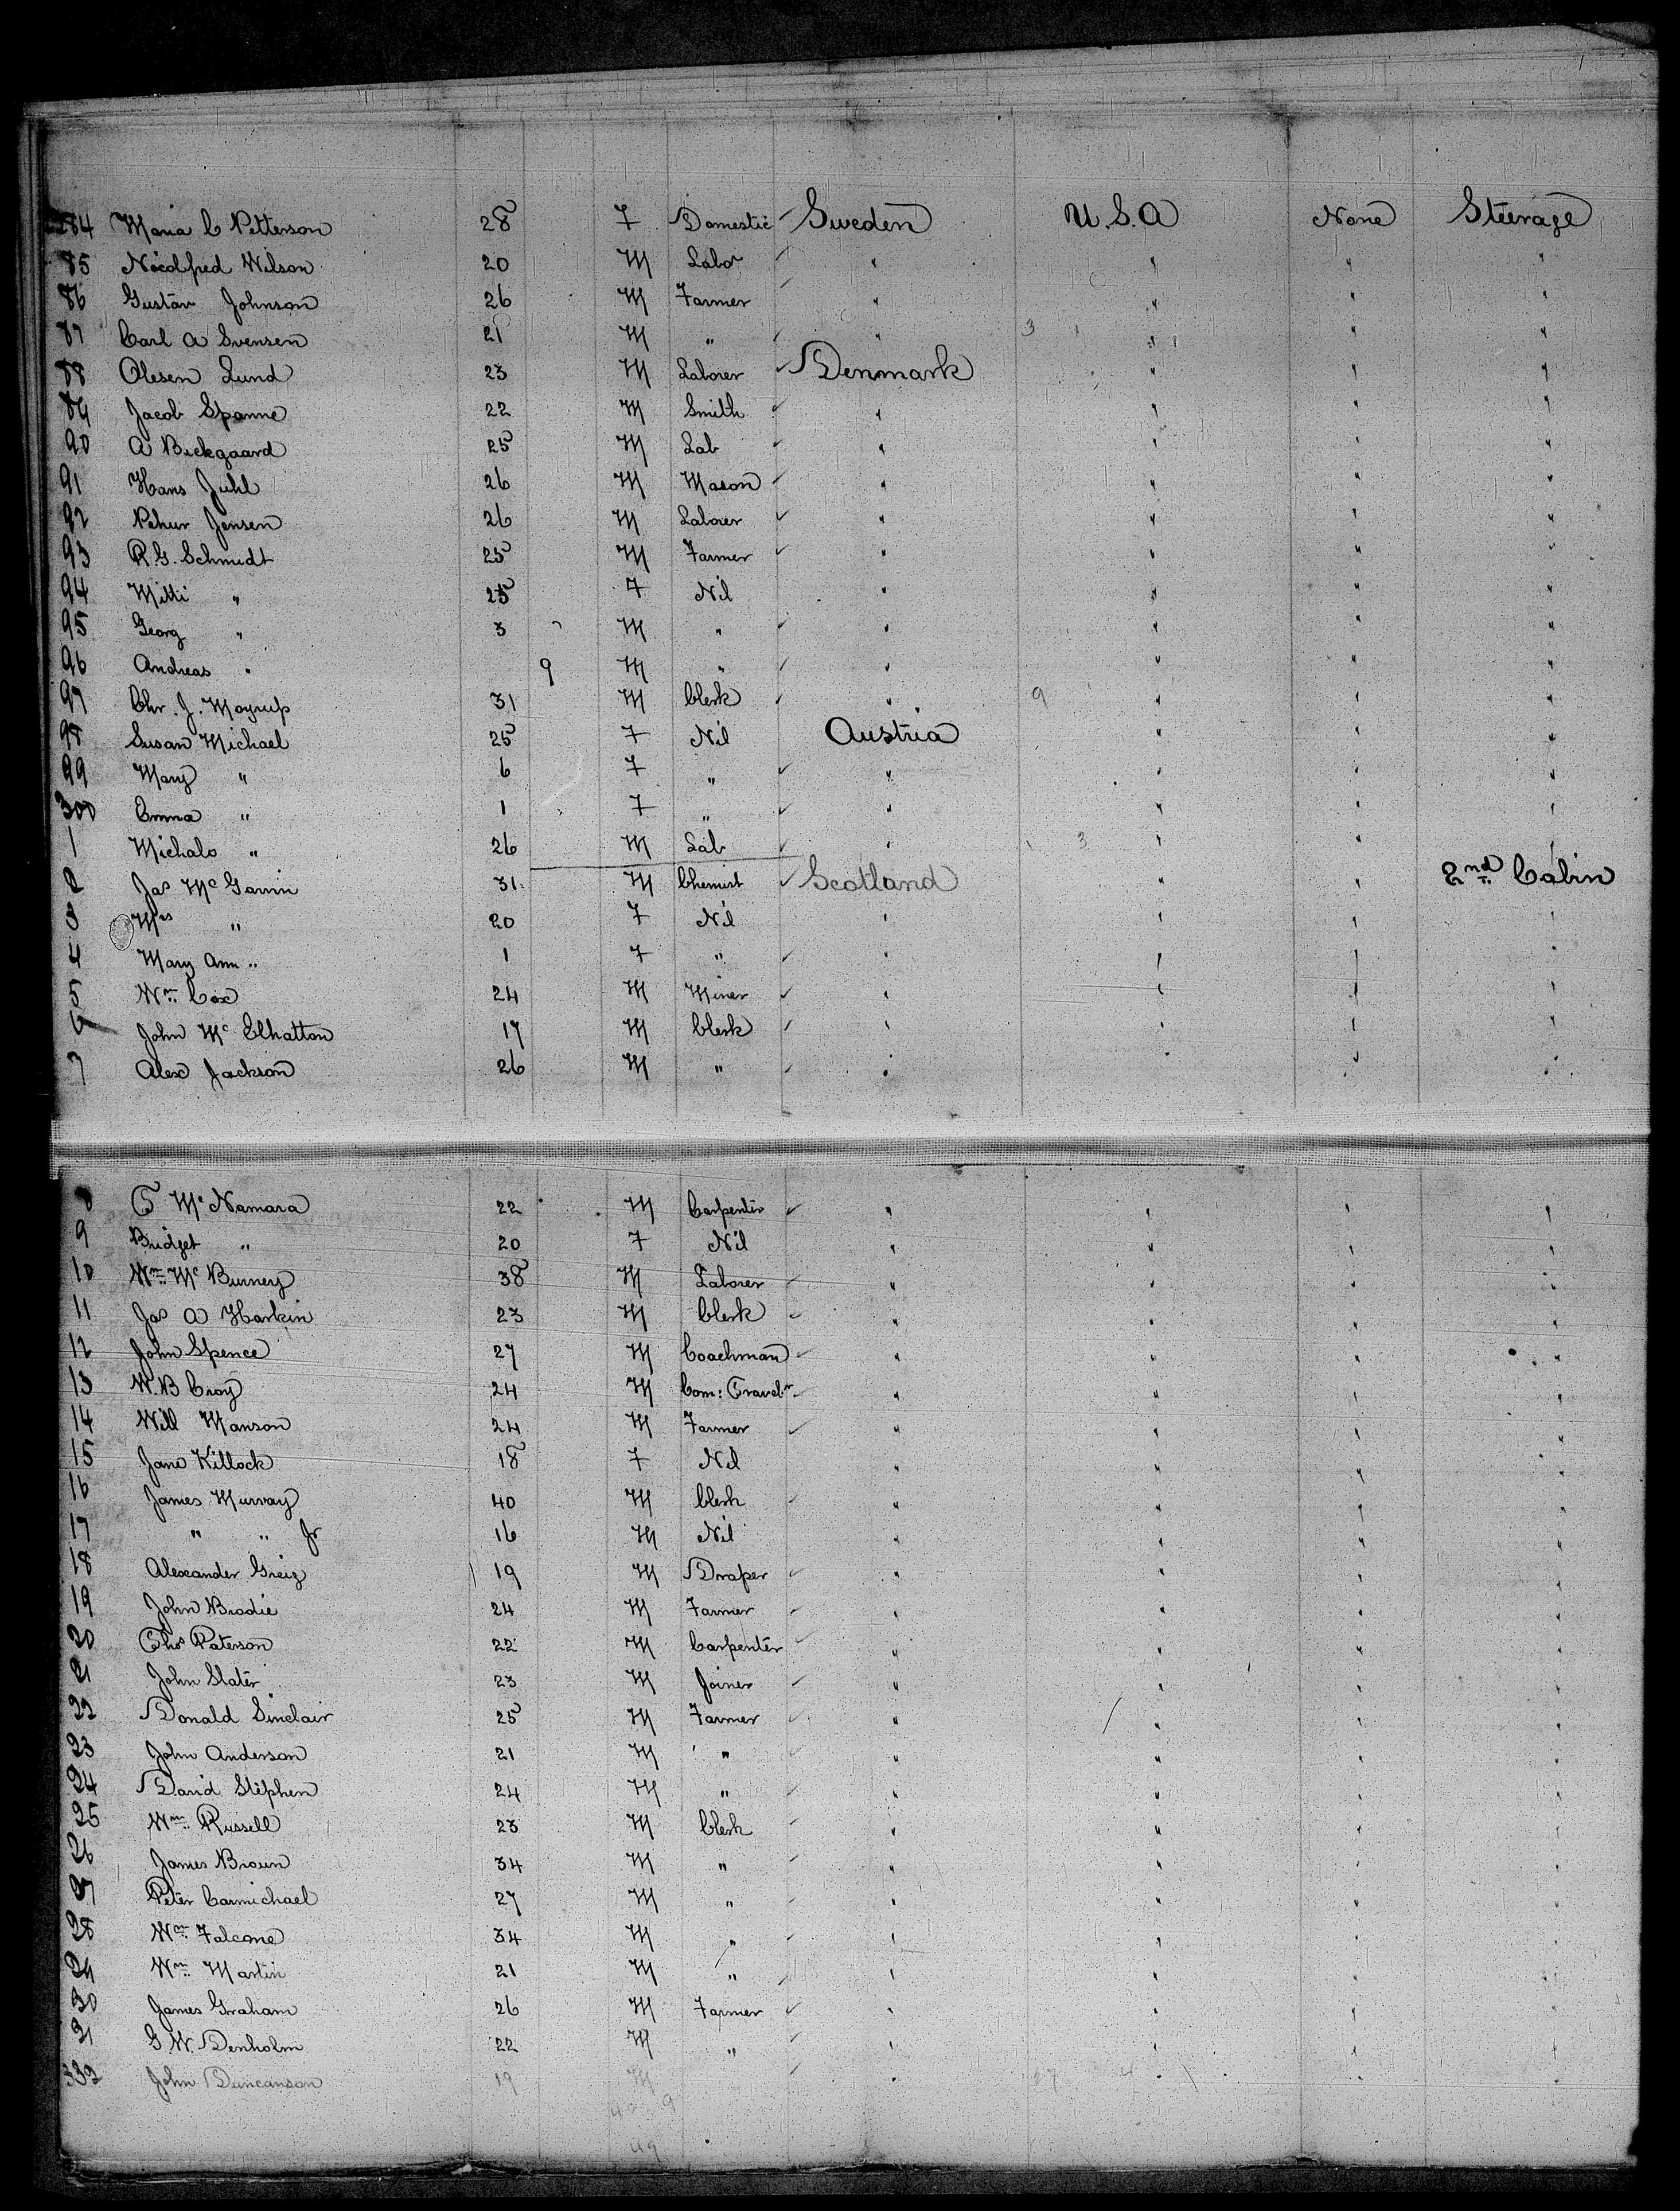 284 Maria C Petterson 28 F Domestic Sweden U.S.A None Steerage
85 Wilson 20 M Labr " " " "
86 Gustav Johnson 26 M Farmer " " " "
87 Carl A Svensen 21 M " " " " "
88 Olesen Lund 23 M Laborer Denmark " " "
89 Jacob Spanne 22 M Smith " " " "
90 A Bickgaard 25 M Lab " " " "
91 Hans Juhl 26 M Mason " " " "
92 Jensen 26 M Laborer " " " "
93 R.G. Schmidt 25 M Farmer " " " "
94 Mitti " 25 F Nil " " " "
95 Georg " 3 M " " " " "
96 Andreas " 9 M " " " " "
97 Chr. J. Moyrup 31 M Clerk " " " "
98 Susan Michael 25 F Nil Austria " " "
99 Mary " 6 F " " " " "
300 Emma " 1 F " " " " "
1 Michalo " 26 M Lab " " " "
2 Jas Mc Gavin 31 M Chemist Scotland " " 2nd Cabin
3 Mrs " 20 F Nil " " " "
4 Mary Ann " 1 F " " " " "
5 Wm Cox 24 M Miner " " " "
6 John Mc Elhatton 17 M Clerk " " " "
7 Alex Jackson 26 M " " " " "
8 T McNamara 22 M Carpenter " " " "
9 Bridget " 20 F Nil " " " "
10 Wm Mc Burney 38 M Laborer " " " "
11 Jas A Harkin 23 M Clerk " " " "
12 John Spence 27 M Coachman " " " "
13 W.B Croy 24 M Com: Travelr " " " "
14 Will Manson 24 M Farmer " " " "
15 Jane Killock 18 F Nil " " " "
16 James Murray 40 M Clerk " " " "
17 " " Jr 16 M Nil " " " "
18 Alexander Greig 19 M Draper " " " "
19 John Brodie 24 M Farmer " " " "
20 Thos Paterson 22 M Carpenter " " " "
21 John Slater 23 M Joiner " " " "
22 Donald Sinclair 25 M Farmer " " " "
23 John Anderson 21 M " " " " "
24 David Stephen 24 M " " " " "
25 Wm Russell 23 M Clerk " " " "
26 James Brown 34 M " " " " "
27 Peter Carmichael 27 M " " " " "
28 Wm Falcone 34 M " " " " "
29 Wm Martin 21 M " " " " "
30 James Graham 26 M Farmer " " " "
31 G.W. Denholm 22 M " " " " "
332 John Duncanson 19 M " " " "